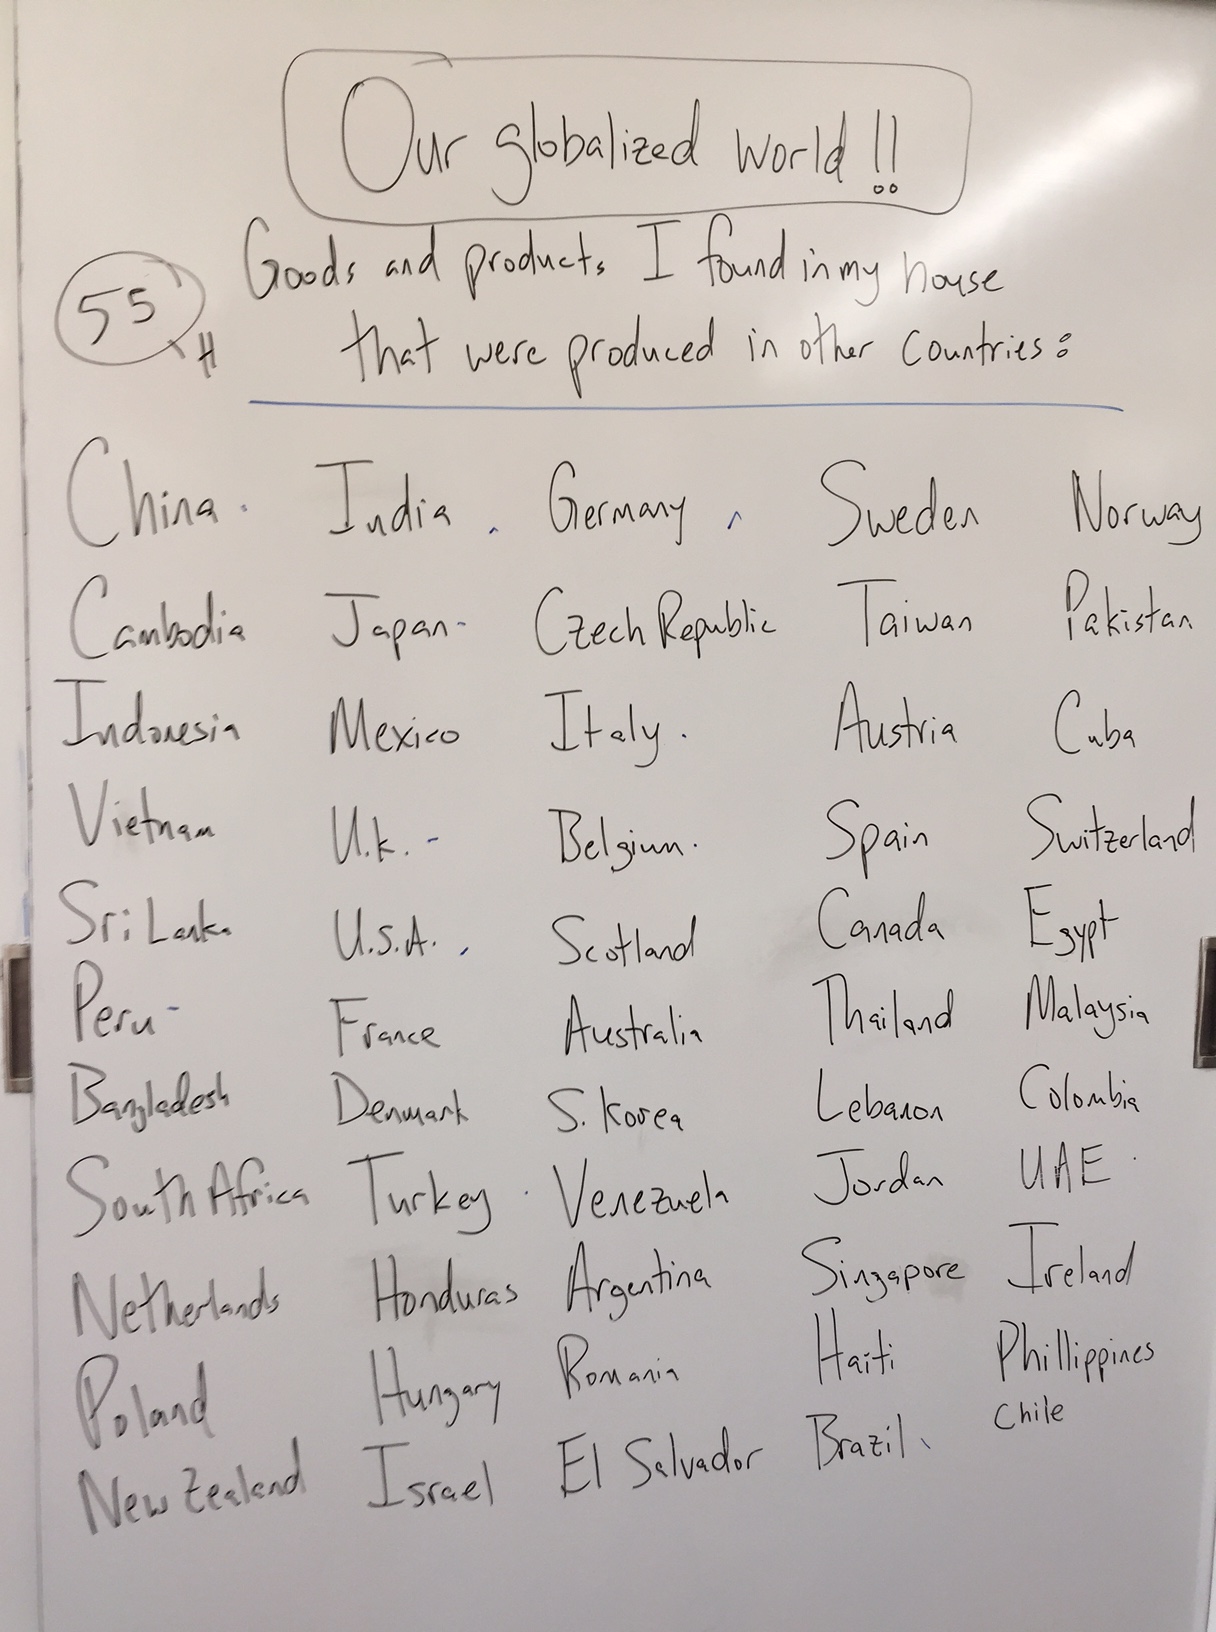 Our globalized world!!
55
H
Goods and products I found in my house
that were produced in other countries:
China India Germany Sweden Norway
Cambodia Japan Czech Republic Taiwan Pakistan
Indonesia Mexico Italy Austria Cuba
Vietnam U.K. Belgium Spain Switzerland
Sri Lanka U.S.A. Scotland Canada Egypt
Peru France Australia Thailand Malaysia
Bangladesh Denmark S. Korea Lebanon Colombia
South Africa Turkey Venezuela Jordan UAE
Netherlands Honduras Argentina Singapore Ireland
Poland Hungary Romania Haiti Phillippines
New Zealand Israel El Salvador Brazil Chile